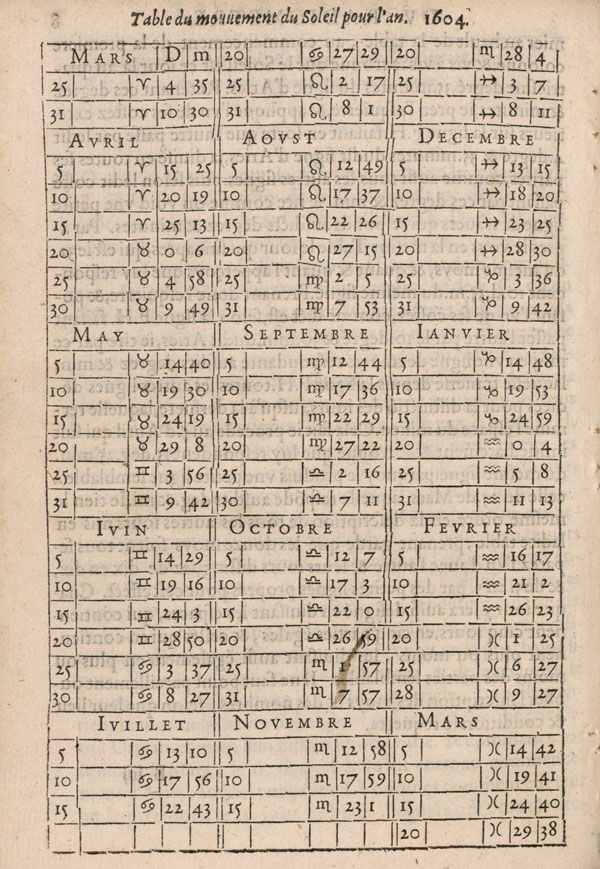 Table du mouuement du Soleil pour l'an. 1604.
MARS D m 20 ♋ 27 29 20 ♏ 28 4
25 ♈ 4 35 25 ♌ 2 17 25 ♐ 3 7
31 ♈ 10 30 31 ♌ 8 1 30 ♐ 8 11
AVRIL AOVST DECEMBRE
5 ♈ 15 25 5 ♌ 12 49 5 ♐ 13 15
10 ♈ 20 19 10 ♌ 17 37 10 ♐ 18 20
15 ♈ 25 13 15 ♌ 22 26 15 ♐ 23 25
20 ♉ 0 6 20 ♌ 27 15 20 ♐ 28 30
25 ♉ 4 58 25 ♍ 2 5 25 ♑ 3 36
30 ♉ 9 49 31 ♍ 7 53 31 ♑ 9 42
MAY SEPTEMBRE IANVIER
5 ♉ 14 40 5 ♍ 12 44 5 ♑ 14 48
10 ♉ 19 30 10 ♍ 17 36 10 ♑ 19 53
15 ♉ 24 19 15 ♍ 22 29 15 ♑ 24 59
20 ♉ 29 8 20 ♍ 27 22 20 ♒ 0 4
25 ♊ 3 56 25 ♎ 2 16 25 ♒ 5 8
31 ♊ 9 42 30 ♎ 7 11 31 ♒ 11 13
IVIN OCTOBRE FEVRIER
5 ♊ 14 29 5 ♎ 12 7 5 ♒ 16 17
10 ♊ 19 16 10 ♎ 17 3 10 ♒ 21 2
15 ♊ 24 3 15 ♎ 22 0 15 ♒ 26 23
20 ♊ 28 50 20 ♎ 26 59 20 ♓ 1 25
25 ♋ 3 37 25 ♏ 1 57 25 ♓ 6 27
30 ♋ 8 27 31 ♏ 7 57 28 ♓ 9 27
IVILLET NOVEMBRE MARS
5 ♋ 13 10 5 ♏ 12 58 5 ♓ 14 42
10 ♋ 17 56 10 ♏ 17 59 10 ♓ 19 41
15 ♋ 22 43 15 ♏ 23 1 15 ♓ 24 40
20 ♓ 29 38